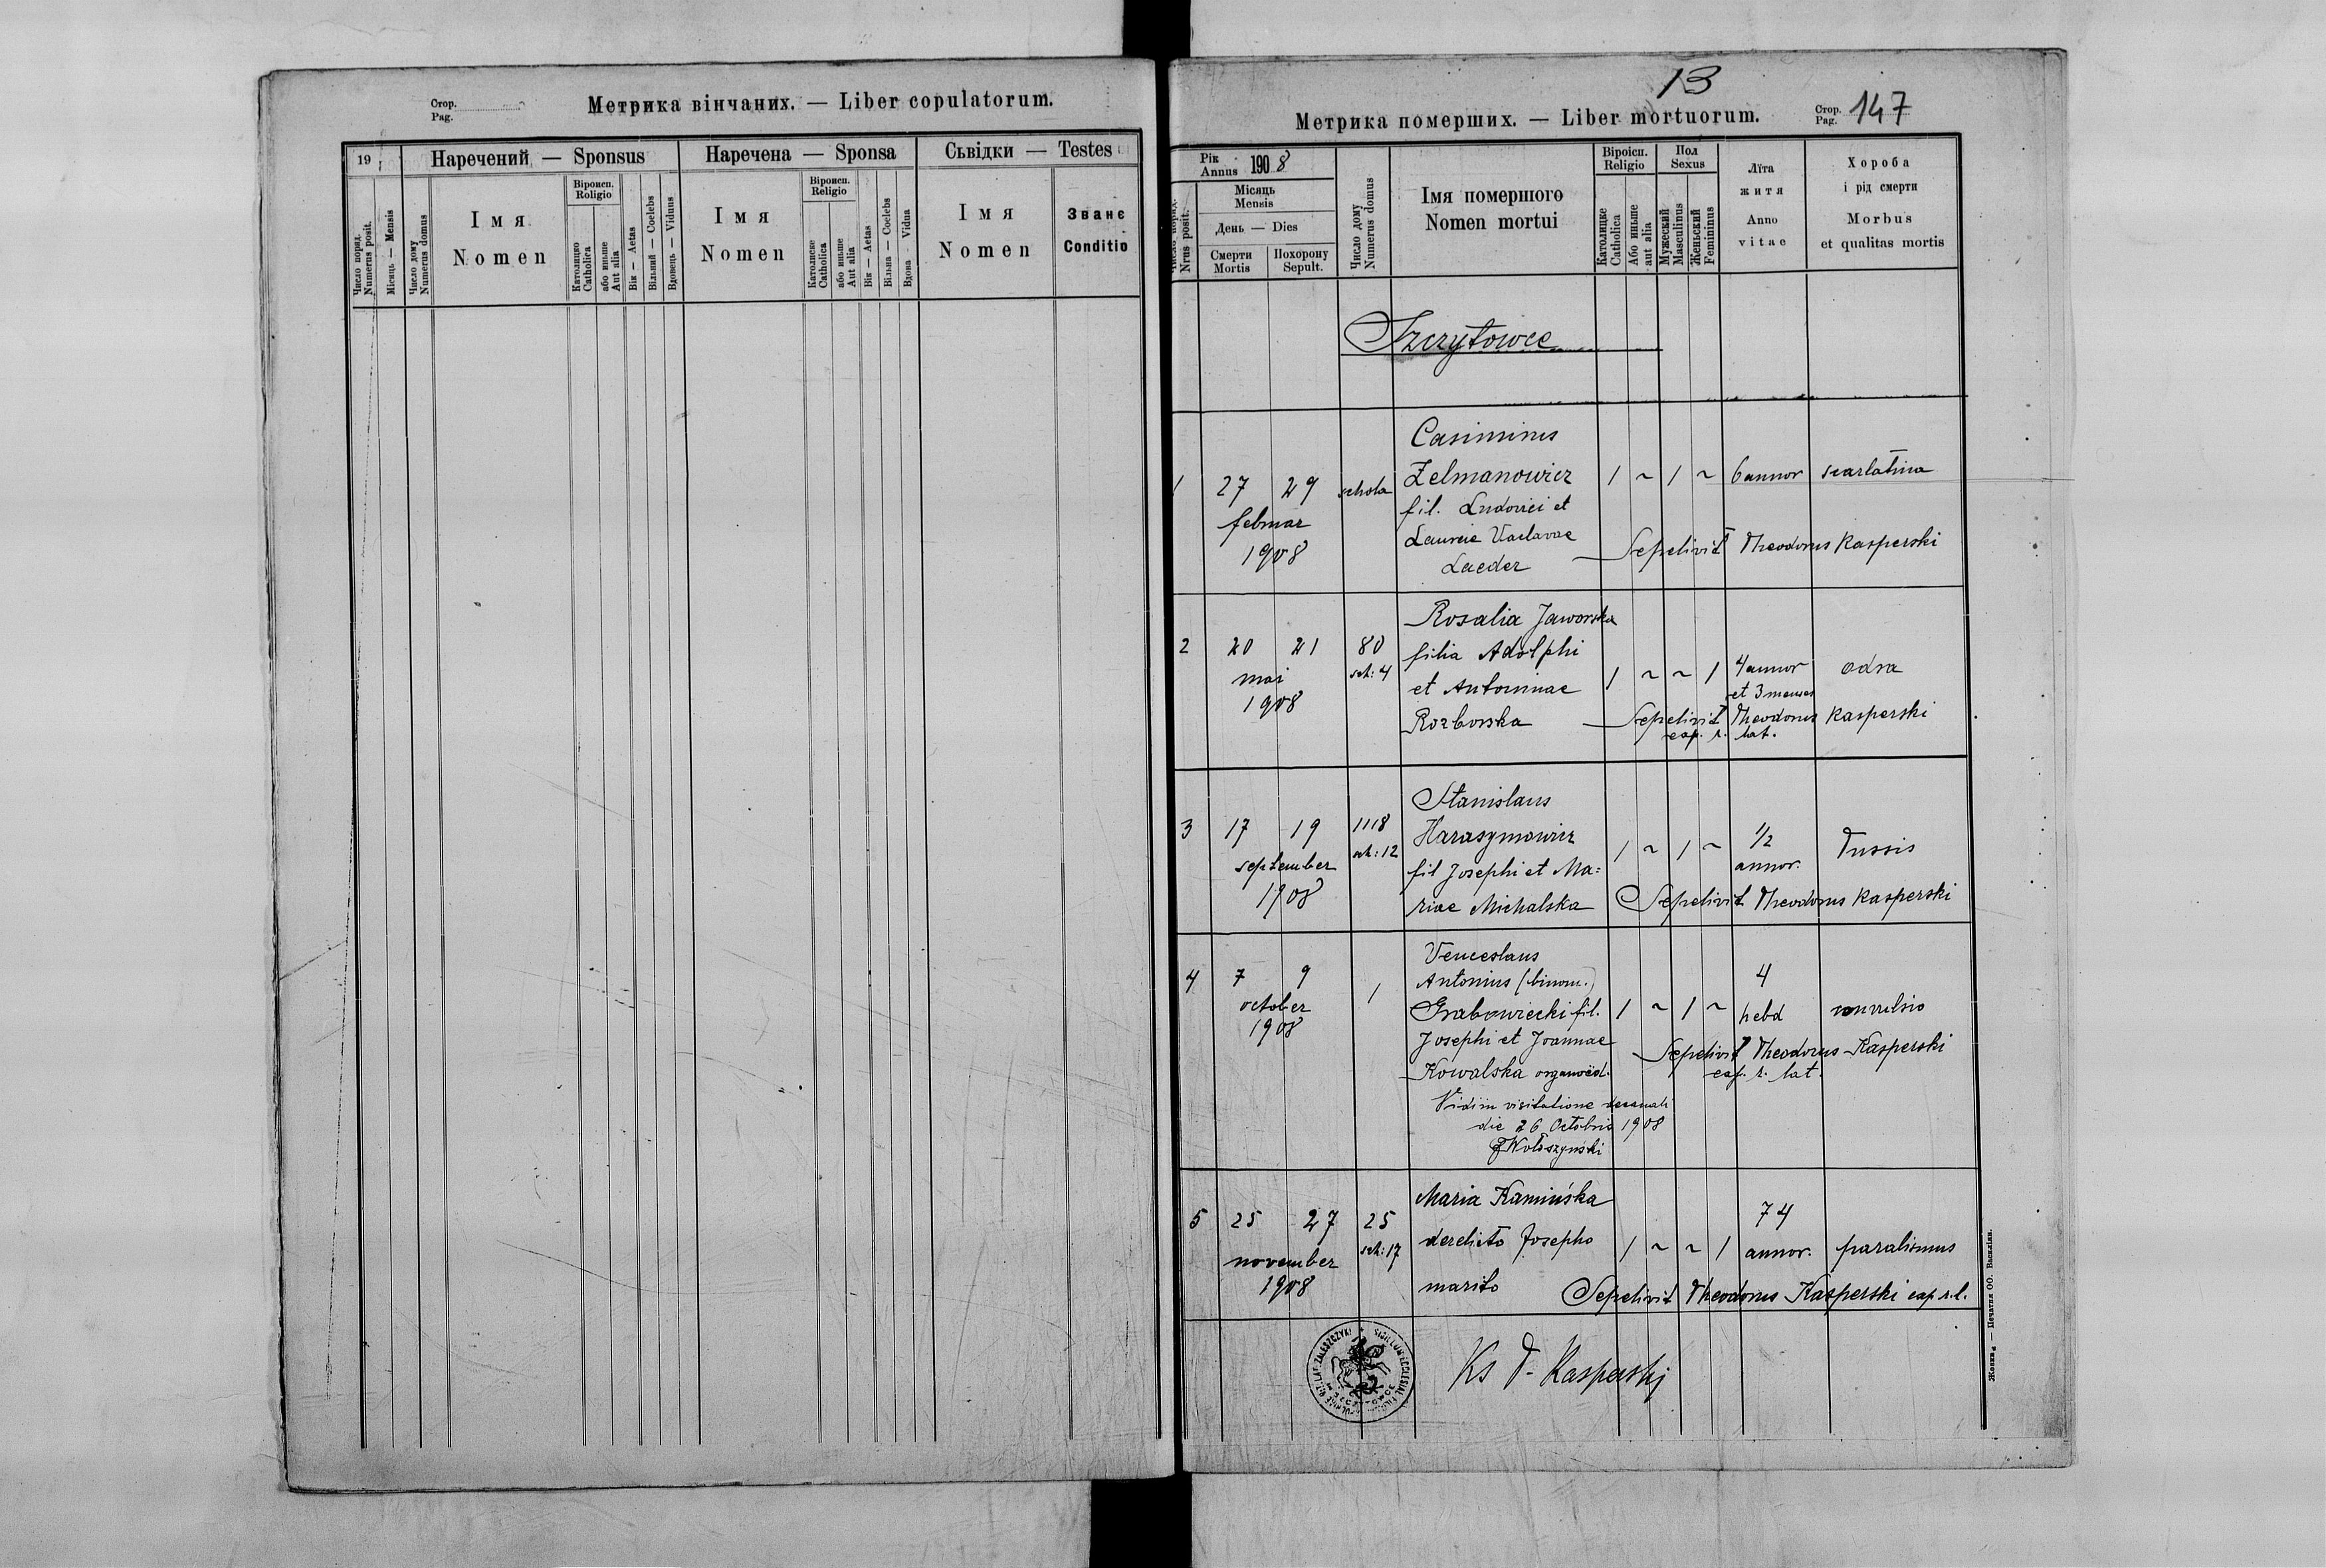 Стор.
Pag.
Метрика вінчаних. — Liber copulatorum.
19
Наречений — Sponsus
Наречена — Sponsa
Сьвідки — Testes
Число поряд.
Numerus posit.
Місяць — Mensis
Число дому
Numerus domus
Імя
Nomen
Віроисп.
Religio
Католицке
Catholica
або иньше
Aut alia
Вік — Aetas
Вільний — Coelebs
Вдовець — Viduus
Імя
Nomen
Віроисп.
Religio
Католицке
Catholica
або иньше
Aut alia
Вік — Aetas
Вільна — Coelebs
Вдова Vidua
Імя
Nomen
Званє
Conditio
13
Метрика померших. — Liber mortuorum.
Стор.
Pag. 147
Рік
Annus 1908
Місяць
Mensis
День — Dies
Nrus posit.
Смерти
Mortis
Похорону
Sepult.
Число дому
Numerus domus
Імя помершого
Nomen mortui
Віроісп.
Religio
Католицке
Catholica
Або иньше
aut alia
Пол
Sexus
Мужеский
Masculinus
Женьский
Femininus
Лїта
житя
Anno
vitae
Хороба
і рід смерти
Morbus
et qualitas mortis
Szczytowce
Casimirus
1 27 29 schola Zelmanowicz 1 ~ 1 ~ 6 annor scarlatina
februar fil. Ludovici et
1908 Vaclavae
Laeder Sepelivit Theodorus Kasperski
Rosalia Jaworska
2 20 21 80 filia Adolphi
mai sch: 4 et Antoninae 1 ~ ~ 1 4 annor odra
et 3 menses
1908 Rozborska Sepelivit Theodorus Kasperski
cap. r. lat.
Stanislaus
3 17 19 1118 Harasymowicz 1 ~ 1 ~ 1/2 Tussis
september sch: 12 fil Josephi et Ma= annor.
1908 riae Michalska Sepelivit Theodorus Kasperski
Venceslaus
4 7 9 1 Antonius (binom.) 4
october Grabowiecki fil. 1 ~ 1 ~ hebd convulsio
1908 Josephi et Joannae Sepelivit Theodorus Kasperski
Kowalska cap. r. lat.
Vidi in visitatione decanali
die 26 Octobris 1908
Wołoszyński
Maria Kamińska
5 25 27 25 74
november sch: 17 derelicto Josepho 1 ~ ~ 1 annor. paralismus
1908 marito Sepelivit Theodorus Kasperski cap r. l.
Ks T. Kasperski
Жовква — Печатня ОО. Василіян.